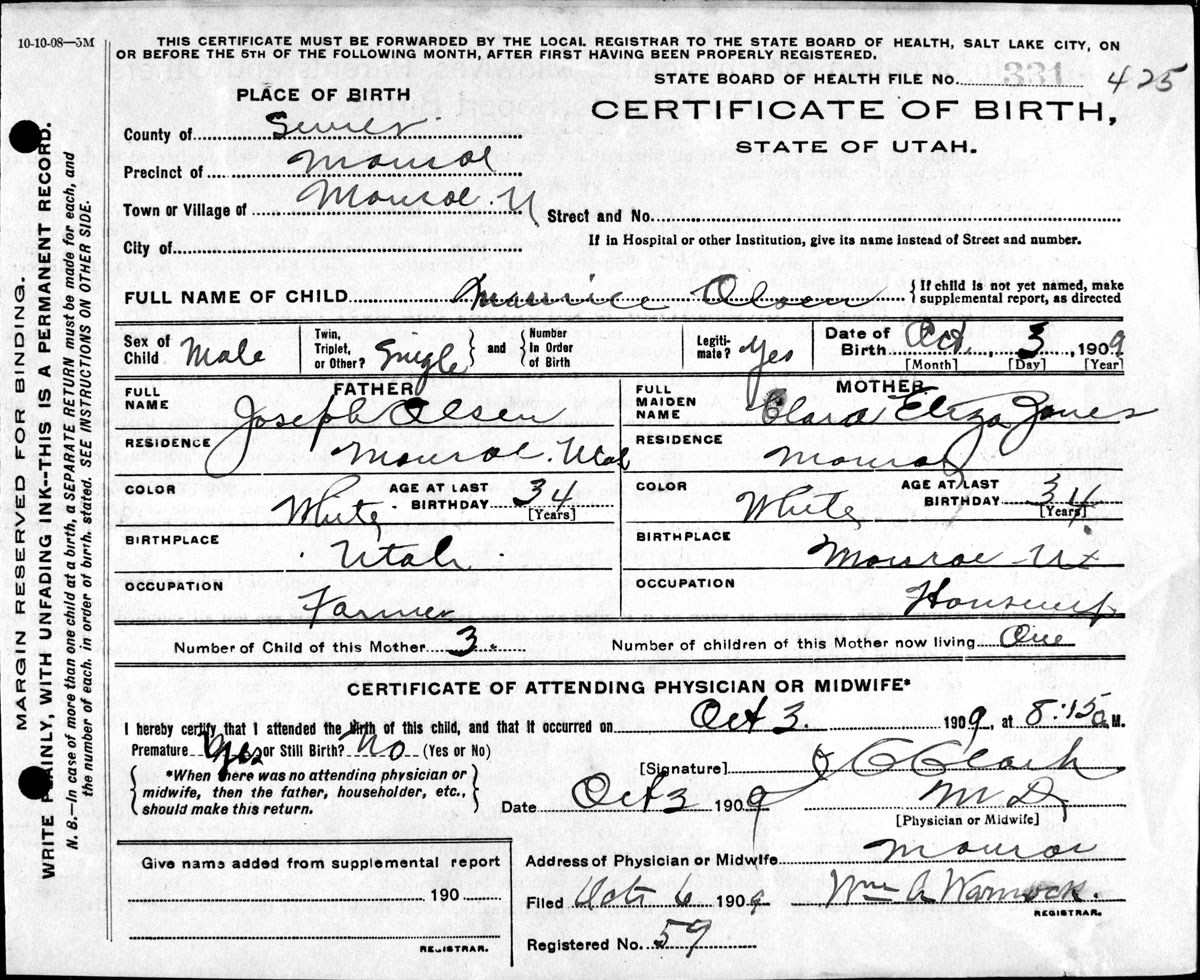 10-10-08—5M
THIS CERTIFICATE MUST BE FORWARDED BY THE LOCAL REGISTRAR TO THE STATE BOARD OF HEALTH, SALT LAKE CITY, ON
OR BEFORE THE 5TH OF THE FOLLOWING MONTH, AFTER FIRST HAVING BEEN PROPERLY REGISTERED.
STATE BOARD OF HEALTH FILE No. 331 425
PLACE OF BIRTH
CERTIFICATE OF BIRTH,
STATE OF UTAH.
County of Sevier
Precinct of Monroe
Town or Village of Monroe. U
Street and No.
City of
If in Hospital or other Institution, give its name instead of Street and number.
FULL NAME OF CHILD Maurice Olsen { If child is not yet named, make
supplemental report, as directed
Sex of
Child Male
Twin,
Triplet,
or Other? Single } and { Number
In Order
of Birth
Legiti-
mate? Yes
Date of
Birth Oct. 3, 1909
[Month] [Day] [Year]
FATHER
FULL
NAME Joseph Olsen
MOTHER
FULL
MAIDEN
NAME Clara Eliza Jones
RESIDENCE Monroe. Utah
RESIDENCE Monroe
COLOR White AGE AT LAST
BIRTHDAY 34
[Years]
COLOR White AGE AT LAST
BIRTHDAY 34
[Years]
BIRTHPLACE Utah
BIRTHPLACE Monroe - Ut
OCCUPATION Farmer
OCCUPATION Housewife
Number of Child of this Mother 3.
Number of children of this Mother now living One
CERTIFICATE OF ATTENDING PHYSICIAN OR MIDWIFE*
I hereby certify that I attended the birth of this child, and that it occurred on Oct 3. 1909, at 8:15 a. M.
Premature Yes or Still Birth? No (Yes or No)
{ *When there was no attending physician or
midwife, then the father, householder, etc.,
should make this return. }
[Signature] Clark
Date Oct 3 1909
M D,
[Physician or Midwife]
Give name added from supplemental report
190
REGISTRAR.
Address of Physician or Midwife Monroe
Filed Oct 6 1909 Wm A Warnock.
REGISTRAR.
Registered No. 59
MARGIN RESERVED FOR BINDING.
WRITE PLAINLY, WITH UNFADING INK--THIS IS A PERMANENT RECORD.
N. B.—In case of more than one child at a birth, a SEPARATE RETURN must be made for each, and
the number of each, in order of birth, stated. SEE INSTRUCTIONS ON OTHER SIDE.